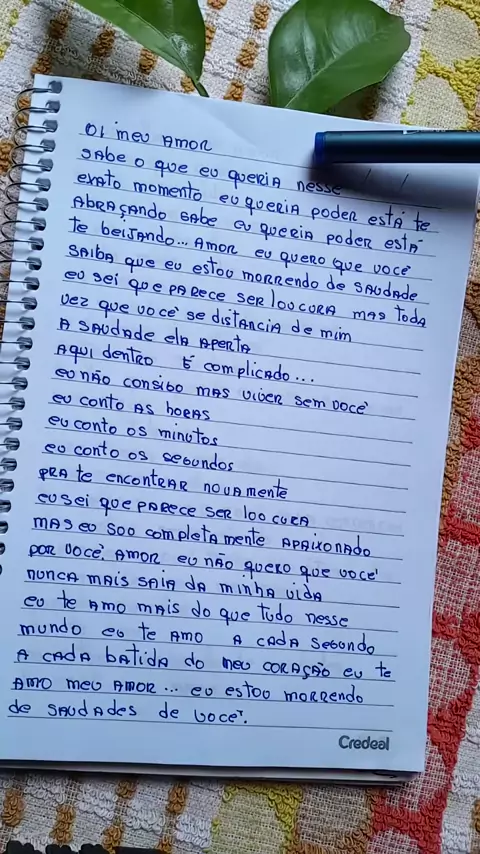 OI MEU AMOR
SABE O QUE EU QUERIA NESSE
EXATO MOMENTO EU QUERIA PODER ESTÁ TE
ABRAÇANDO SABE EU QUERIA PODER ESTÁ
TE BEIJANDO... AMOR EU QUERO QUE VOCÊ
SAIBA QUE EU ESTOU MORRENDO DE SAUDADE
EU SEI QUE PARECE SER LOUCURA MAS TODA
VEZ QUE VOCÊ SE DISTANCIA DE MIM
A SAUDADE ELA APERTA
AQUI DENTRO É COMPLICADO...
EU NÃO CONSIGO MAS VIVER SEM VOCÊ
EU CONTO AS HORAS
EU CONTO OS MINUTOS
EU CONTO OS SEGUNDOS
PRA TE ENCONTRAR NOVAMENTE
EU SEI QUE PARECE SER LOUCURA
MAS EU SOU COMPLETAMENTE APAIXONADO
POR VOCÊ. AMOR EU NÃO QUERO QUE VOCÊ
NUNCA MAIS SAIA DA MINHA VIDA
EU TE AMO MAIS DO QUE TUDO NESSE
MUNDO EU TE AMO A CADA SEGUNDO
A CADA BATIDA DO MEU CORAÇÃO EU TE
AMO MEU AMOR... EU ESTOU MORRENDO
DE SAUDADES DE VOCÊ.
Credeal